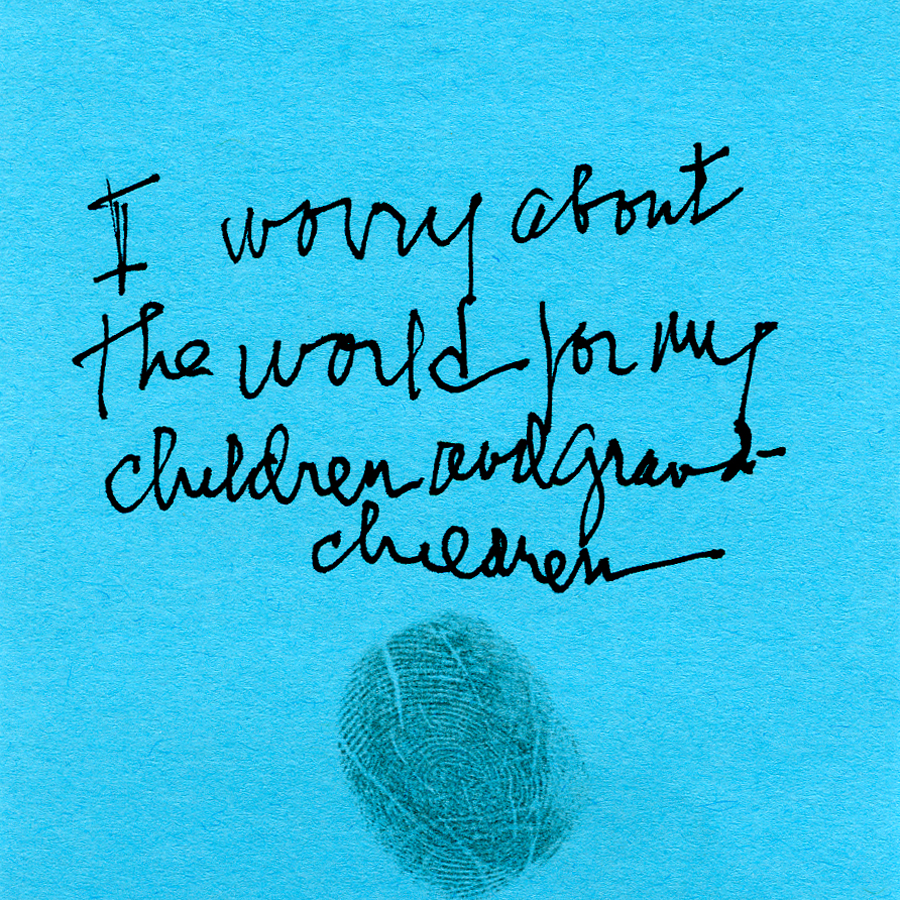 I worry about
the world for my
children and grand-
children